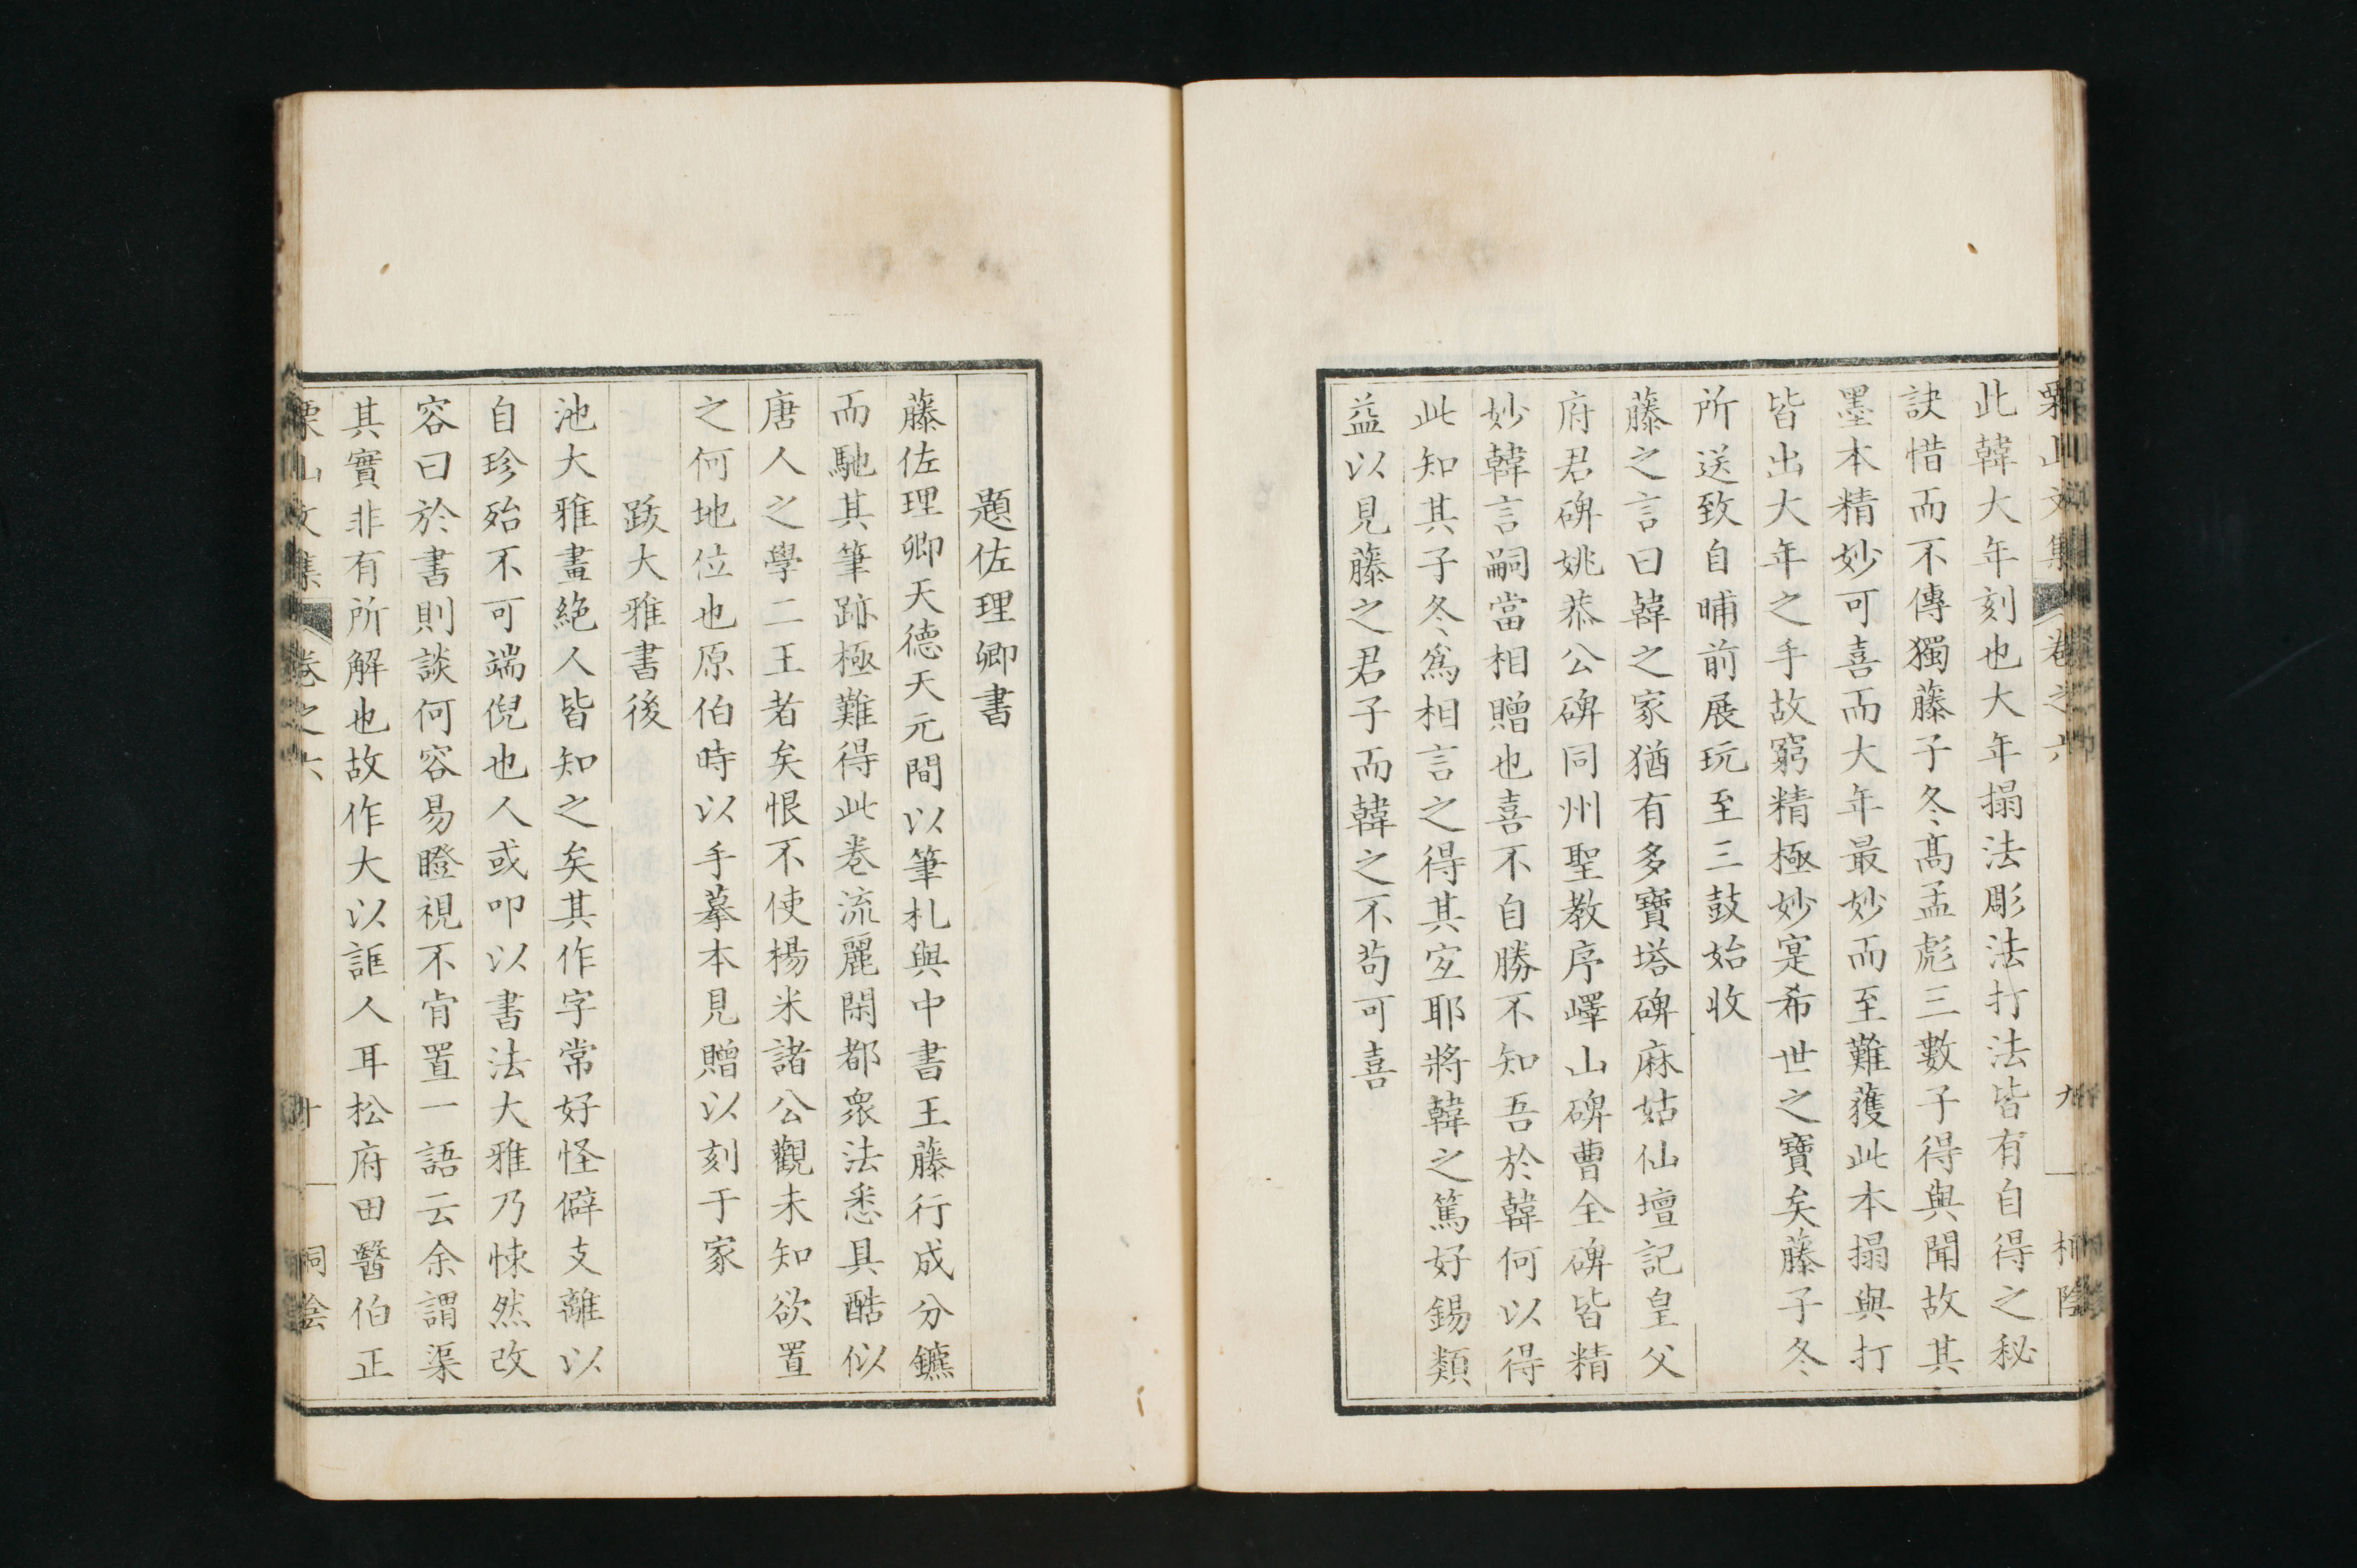 栗山文集 卷之六 九 桐陰
此韓大年刻也大年搨法彫法打法皆有自得之秘
訣惜而不傳獨藤子冬高孟彪三數子得與聞故其
墨本精妙可喜而大年最妙而至難獲此本搨與打
皆出大年之手故窮精極妙寔希世之寶矣藤子冬
所送致自晡前展玩至三鼓始收
藤之言曰韓之家猶有多寶塔碑麻姑仙壇記皇父
府君碑姚恭公碑同州聖教序嶧山碑曹全碑皆精
妙韓言嗣當相贈也喜不自勝不知吾於韓何以得
此知其子冬爲相言之得其宐耶將韓之篤好錫類
益以見藤之君子而韓之不苟可喜
題佐理卿書
藤佐理卿天德天元間以筆札與中書王藤行成分鑣
而馳其筆跡極難得此卷流麗閑都衆法悉具酷似
唐人之學二王者矣恨不使楊米諸公觀未知欲置
之何地位也原伯時以手摹本見贈以刻于家
跋大雅書後
池大雅畫絶人皆知之矣其作字常好怪僻支離以
自珍殆不可端倪也人或叩以書法大雅乃悚然改
容曰於書則談何容易瞪視不肯置一語云余謂渠
其實非有所解也故作大以誑人耳松府田醫伯正
栗山文集 卷之六 十 桐陰